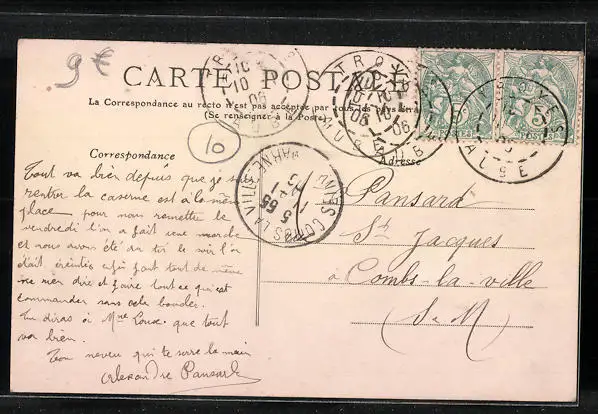 9 €
CARTE POSTALE
La Correspondance au recto n'est pas acceptée par tous les pays
(Se renseigner à la Poste)
10
Correspondance
Adresse
Tout va bien depuis que je suis
rentrer la caserne est à la même
place pour nous remettre le
vendredi l'on a fait une marche
et nous avons été au tir le soir l'on
était éreintés enfin faut tout de même
ne rien dire et faire tout ce qui est
commander sans cela boucler.
Tu diras à Mme Louse que tout
va bien.
Ton neveu qui te serre la main
Alexandre Pansard
Pansard
St Jacques
à Combs-la-ville
(S-M)
TROYES
AUBE
10
10
06
TROYES
AUBE
5
POSTES
5
POSTES
COMBS LA VILLE
SEINE ET MARNE